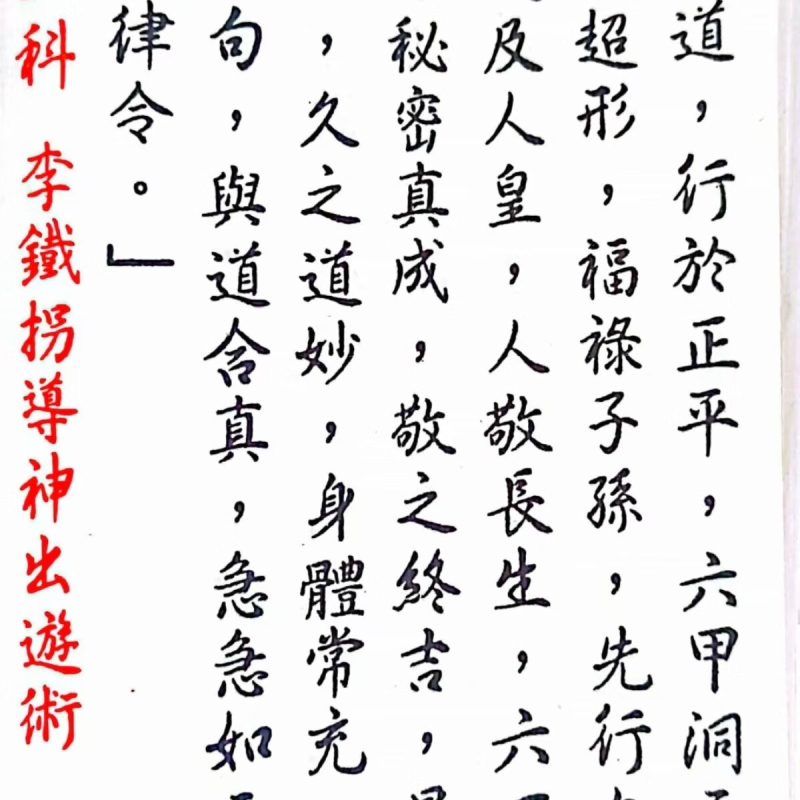 道，行於正平，六甲洞
超形，福祿子孫，先行
及人皇，人敬長生，六
秘密真成，敬之終吉，
，久之道妙，身體常充
句，與道合真，急急如
律令。」
科　李鐵拐導神出遊術